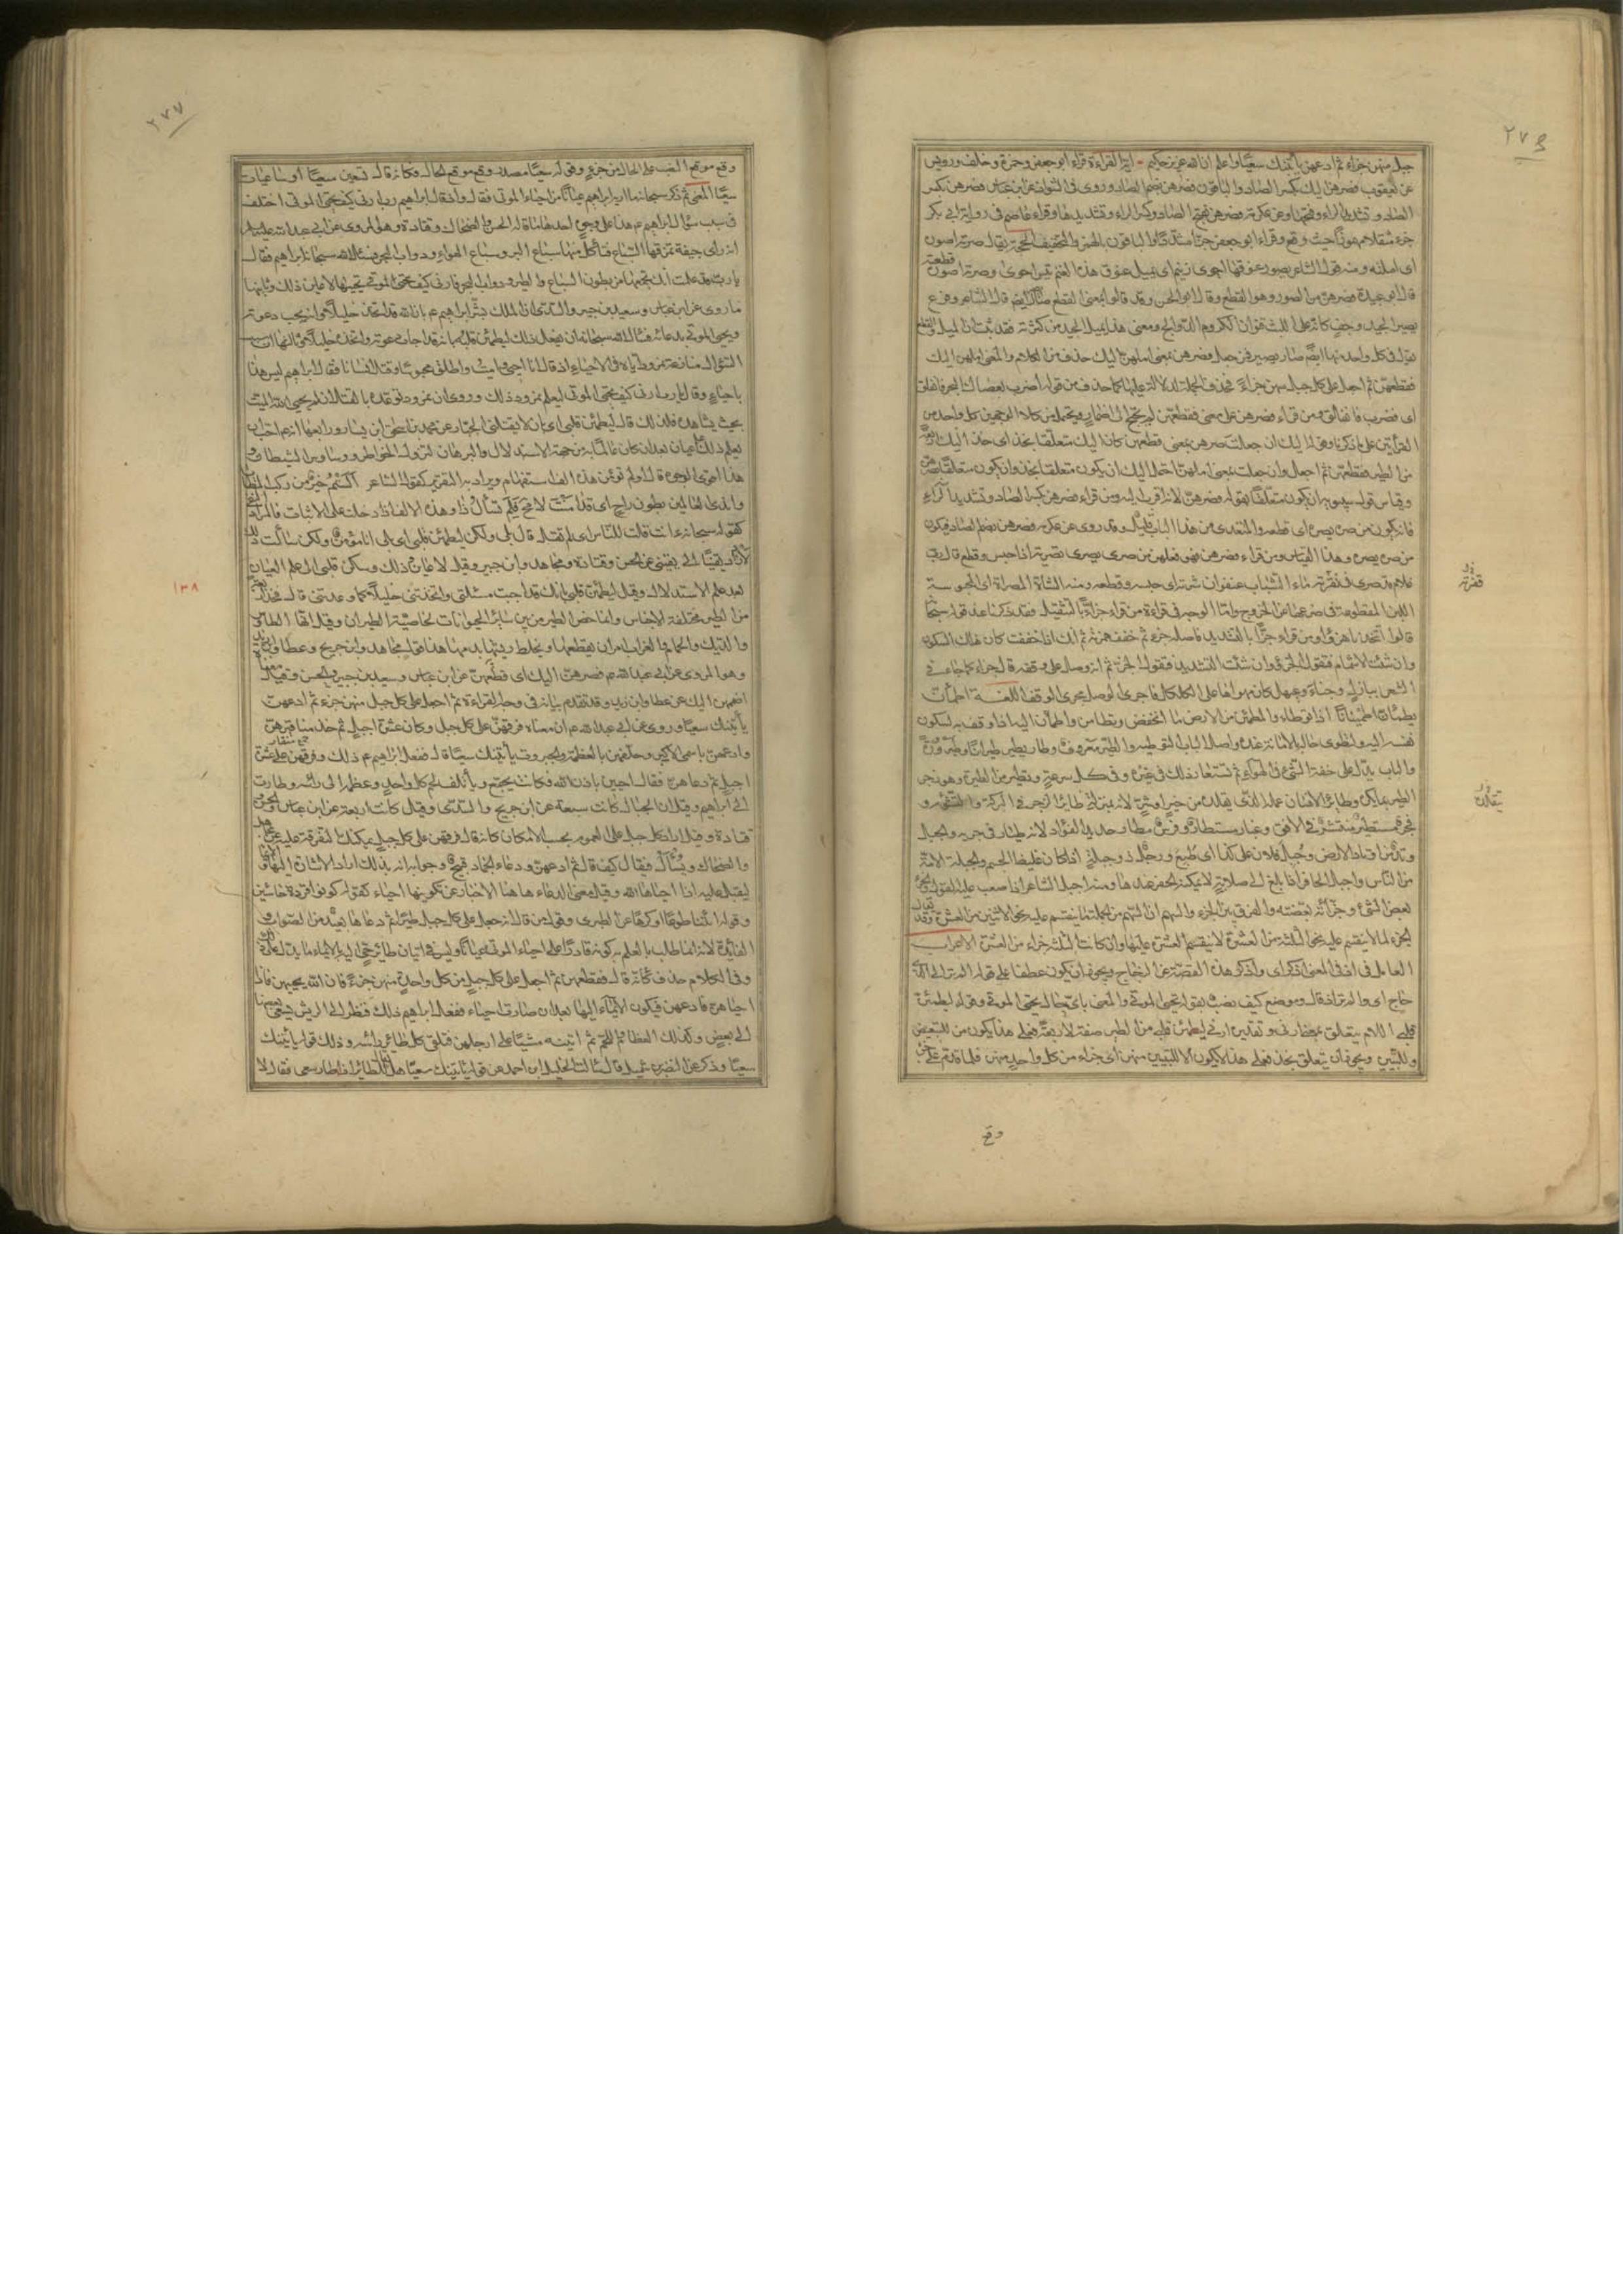 ٢٧٦
جبل منهن جزاء ثم ادعهن يأتينك سعيا واعلم ان الله عزيز حكيم اية القراءة قراء ابو جعفر وحمزة وخلف ورويس
عن يعقوب فصرهن اليك بكسر الصاد والباقون فصرهن بضم الصاد وروى في الشواذ عن ابن عباس فصرهن بكسر
الصاد وتشديد الراء وفتحها وعن عكرمة فصرهن بفتح الصاد وكسر الراء وتشديدها وقراء عاصم في رواية ابي بكر
جزء مثقلا مهموزا حيث وقع وقراء ابو جعفر جزا مشددا والباقون بالهمز والتخفيف الحجة يقال صرته اصوره
اى املته ومنه قول الشاعر يصور عنوقها احوى زنيم اى يميل عنوق هذه الغنم تيس احوى وصرته اصوره قطعته
قال ابو عبيدة فصرهن من الصور وهو القطع وقال ابو الحسن وقد قالوا بمعنى القطع صار يصير ايضا قال الشاعر وفرع
يصير الجيد وحف كانه على الليت قنوان الكروم الدوالح ومعنى هذا يميل الجيد من كثرته فقد ثبت ان الميل والقطع
يقال في كل واحد منهما ايضا صار يصير فمن جعل فصرهن بمعنى املهن اليك حذف من الكلام والمعنى املهن اليك
فقطعهن ثم اجعل على كل جبل منهن جزاء فحذف الجملة لدلالة عليها كما حذف من قوله اضرب بعصاك البحر فانفلق
اى فضرب فانفلق ومن قراء فصرهن على معنى فقطعهن لم يحتج الى اضمار ويحتمل من كلا الوجهين كل واحد من
القرأتين على ما ذكرنا وقوله اليك ان جعلت صرهن بمعنى قطعهن كان اليك متعلقا بخذ اى خذ اليك اربعة
من الطير فقطعهن ثم اجعل وان جعلت بمعنى املهن احتمل اليك ان يكون متعلقا بخذ وان يكون متعلقا بصرهن
وقياس قول سيبويه ان يكون متعلقا بقوله فصرهن لانه اقرب اليه ومن قراء فصرهن بكسر الصاد وتشديد الراء
فانه يكون من صره يصره اى قطعه والمتعدى من هذا الباب قليل وقد روى عن عكرمة فصرهن بضم الصاد فيكون
من صره يصره وهذا القياس ومن قراء فصرهن فهو فعلهن من صرى يصرى تصرية اذا حبس وقطع قال رب
غلام قد صرى في فقرته ماء الشباب عنفوان شرته اى حبسه وقطعه ومنه الشاة المصراة اى المحبوسة
اللبن المقطوعة في ضرعها عن الخروج واما الوجه في قراءة من قراء جزاء بالتثقيل فقد ذكرنا عند قوله سبحانه
قالوا اتتخذنا هزؤا ومن قراء جزا بالتشديد فاصله جزء ثم خفف همزته ثم انك اذا خففت كان هناك السكون
وان شئت الاشمام فتقول الجزؤ وان شئت التشديد فتقول الجز ثم انه وصل على وقفه فقال جزا كما جاء في
الشعر ببازل وجناء او عيهل كان مهواها على الكلكل فاجرى الوصل مجرى الوقف اللغة اطمأن
يطمئن اطمئنانا اذا توطاء والمطمئن من الارض ما انخفض وتطامن واطمأن اليه اذا وثق به لسكون
نفسه اليه ولظوى حاله بالامانة عنده واصل الباب التوطية والطير معروف وطار يطير طيرانا وطيرورة
والباب يدل على خفة الشئ في الهواء ثم تستعار ذلك في غيره وفي كل سرعة وتطير من الطيرة وهو زجر
الطير بما يكره وطائر الانسان عمله الذى يقلده من خير او شر لانه بمنزلة طائر الزجر في البركة والتشؤم و
فجر مستطير منتشر في الافق وغبار مستطار وفرس مطار حديد الفؤاد لانه طيار في جريه والجبل
وتد من اوتاد الارض وجبل فلان على كذا اى طبع ورجل ذو جبلة اذا كان غليظ الجسم والجبلة الامة
من الناس واجبل الحافر اذا بلغ الى صلابة لا يمكنه الحفر عندها ومنه اجبل الشاعر اذا صعب عليه القول والجزء
بعض الشئ وجزأته بعضته والفرق بين الجزء والسهم ان السهم من الجملة ما ينقسم عليه نحو الاثنين من العشرة وقد يقال
الجزء لما لا ينقسم عليه نحو الثلثة من العشرة لا ينقسم العشرة عليها وان كانت الثلثة جزاء من العشرة الاعراب
العامل في اذ في المعنى اذكر اى واذكر هذه القصة عن الزجاج ويجوز ان يكون عطفا على قوله الم تر الى الذى
حاج اى والم تر اذ قال وموضع كيف نصب بقوله تحيى الموتى والمعنى باى حال تحيى الموتى وقوله ليطمئن
قلبى اللام يتعلق بمضار في وتقديره ارنى ليطمئن قلبى من الطير صفة لاربعة فعلى هذا يكون من للتبعيض
وللتبيين ويجوز ان يتعلق بخذ فعلى هذا لا يكون الا للتبيين منهن اى جزاء من كل واحد منهن فلما قدم على جزء
فقرته
وقع
٢٧٧
وقع موقع النصب على الحال من جزء وقوله سعيا مصدر وقع موقع الحال وكانه قال تسعين سعيا او ساعيات
سعيا المعنى ثم ذكر سبحانه ما اراه ابراهيم عيانا من احياء الموتى فقال واذ قال ابراهيم رب ارنى كيف تحيى الموتى اختلف
في سبب سؤال ابراهيم عم هذا على وجوه احدها ما قاله الحسن والضحاك وقتادة وهو المروى عن ابى عبد الله عليه السلم
انه راى جيفة تمزقها السباع فتأكل منها سباع البر وسباع الهواء ودواب البحر فسئل الله سبحانه ابراهيم فقال
يا رب قد علمت انك تجمعها من بطون السباع والطير ودواب البحر فارنى كيف تحيى الموتى تحييها لاعاين ذلك وثانيها
ما روى عن ابن عباس وسعيد بن جبير والسدى ان الملك بشر ابراهيم عم بان الله قد اتخذه خليلا وانه يجيب دعوته
ويحيى الموتى بدعائه فسأل الله سبحانه ان يفعل ذلك ليطمئن قلبه بانه قد اجاب دعوته واتخذه خليلا وثالثها ان سبب
السؤال منازعة نمرود اياه في الاحياء اذ قال انا احيى واميت واطلق محبوسا وقتل انسانا فقال ابراهيم ليس هذا
باحياء وقال يا رب ارنى كيف تحيى الموتى ليعلم نمرود ذلك وروى ان نمرود توعده بالقتل ان لم يحيى الله الميت
بحيث يشاهده فلذلك قال ليطمئن قلبى اى بان لا يقتلنى الجبار عن محمد بن اسحق ابن يسار ورابعها انه احب ان
يعلم ذلك علم عيان بعد ان كان عالما به من جهة الاستدلال والبرهان لتزول الخواطر ووساوس الشيطان و
هذا اقوى الوجوه قال اولم تؤمن هذه الف استفهام ويراد به التقرير كقول الشاعر الستم خير من ركب المطايا
واندى العالمين بطون راح اى قد امنت لا محة فلم تسأل ذا وهذه الالف اذا دخلت على الاثبات فالمراد النفى
كقوله سبحانه ءانت قلت للناس اى لم تقل قال بلى ولكن ليطمئن قلبى اى بلى انا مؤمن ولكن سألت ذلك
لازداد يقينا الى يقينى عن الحسن وقتادة ومجاهد وابن جبير وقيل لاعاين ذلك ويسكن قلبى الى علم العيان
بعد علم الاستدلال وقيل ليطمئن قلبى بانك قد اجبت مسئلتى واتخذتنى خليلا كما وعدتنى قال فخذ اربعة
من الطير مختلفة الاجناس وانما خص الطير من بين سائر الحيوانات لخاصية الطيران وقيل انها الطاوس
والديك والحمام والغراب امر ان يقطعها ويخلط ريشها بدمها هذا قول مجاهد وابن جريج وعطا وابن زيد
وهو المروى عن ابى عبد الله عم فصرهن اليك اى قطعهن عن ابن عباس وسعيد بن جبير والحسن وقيل معناه
اضممهن اليك عن عطا وابن زيد وقد تقدم بيانه في وجه القراءة ثم اجعل على كل جبل منهن جزء ثم ادعهن
يأتينك سعيا وروى عن ابى عبد الله عم ان معناه فرقهن على كل جبل وكان عشرة اجبل ثم خذ مناقيرهن جمع منقار
وادعهن باسمى الاكبر وحلفهن بالعظمة والجبروت يأتينك سعيا قال ففعل ابراهيم عم ذلك وفرقهن على عشرة
اجبل ثم دعاهن فقال اجبن باذن الله فكانت يجتمع ويأتلف لحم كل واحد وعظمه الى رأسه وطارت
الى ابراهيم وقيل ان الجبال كانت سبعة عن ابن جريج والسدى وقيل كانت اربعة عن ابن عباس والحسن و
قتادة وقيل اراد كل جبل على العموم بحسب الامكان كانه قال فرقهن على كل جبل يمكنك التفرقة عليه عن مجاهد
والضحاك ويسأل فيقال كيف قال ثم ادعهن ودعاء الجماد قبيح وجوابه انه بذلك اراد الاشارة اليها والايماء
لتقبل عليه اذا احياها الله وقيل معنى الدعاء هاهنا الاخبار عن تكوينها احياء كقوله كونوا قردة خاسئين
وقوله ائتيا طوعا او كرها عن الطبرى وقول من قال انه جعل على كل جبل طيرا ثم دعاها بعيد من الصواب و
الفائدة لانه انما طلب بالعلم به كونه قادرا على احياء الموتى عيانا وليس في اتيان طائر حى اليه بالايماء ما يدل على ذلك
وفي الكلام حذف فكانه قال فقطعهن ثم اجعل على كل جبل من كل واحد منهن جزءا فان الله يحييهن فاذا
احياهن فادعهن فيكون الايماء اليها بعد ان صارت احياء ففعل ابراهيم ذلك فنظر الى الريش يسعى بعضها
الى بعض وكذلك العظام واللحم ثم اتينه مشيا على ارجلهن فتلقى كل طائر رأسه وذلك قوله يأتينك
سعيا وذكر عن النضر بن شميل قال سألت الخليل ابن احمد عن قوله يأتينك سعيا هل يقال للطائر اذا طار سعى فقال لا
١٣٨